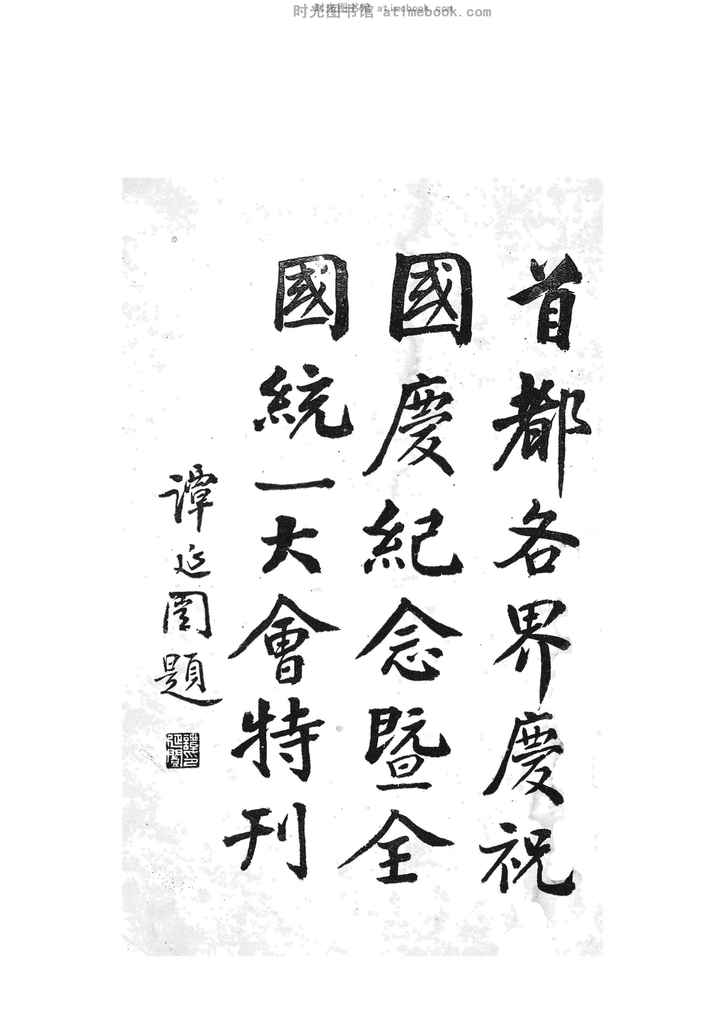 时光图书馆 atimebook.com
首都各界慶祝
國慶紀念暨全
國統一大會特刊
譚延闓題